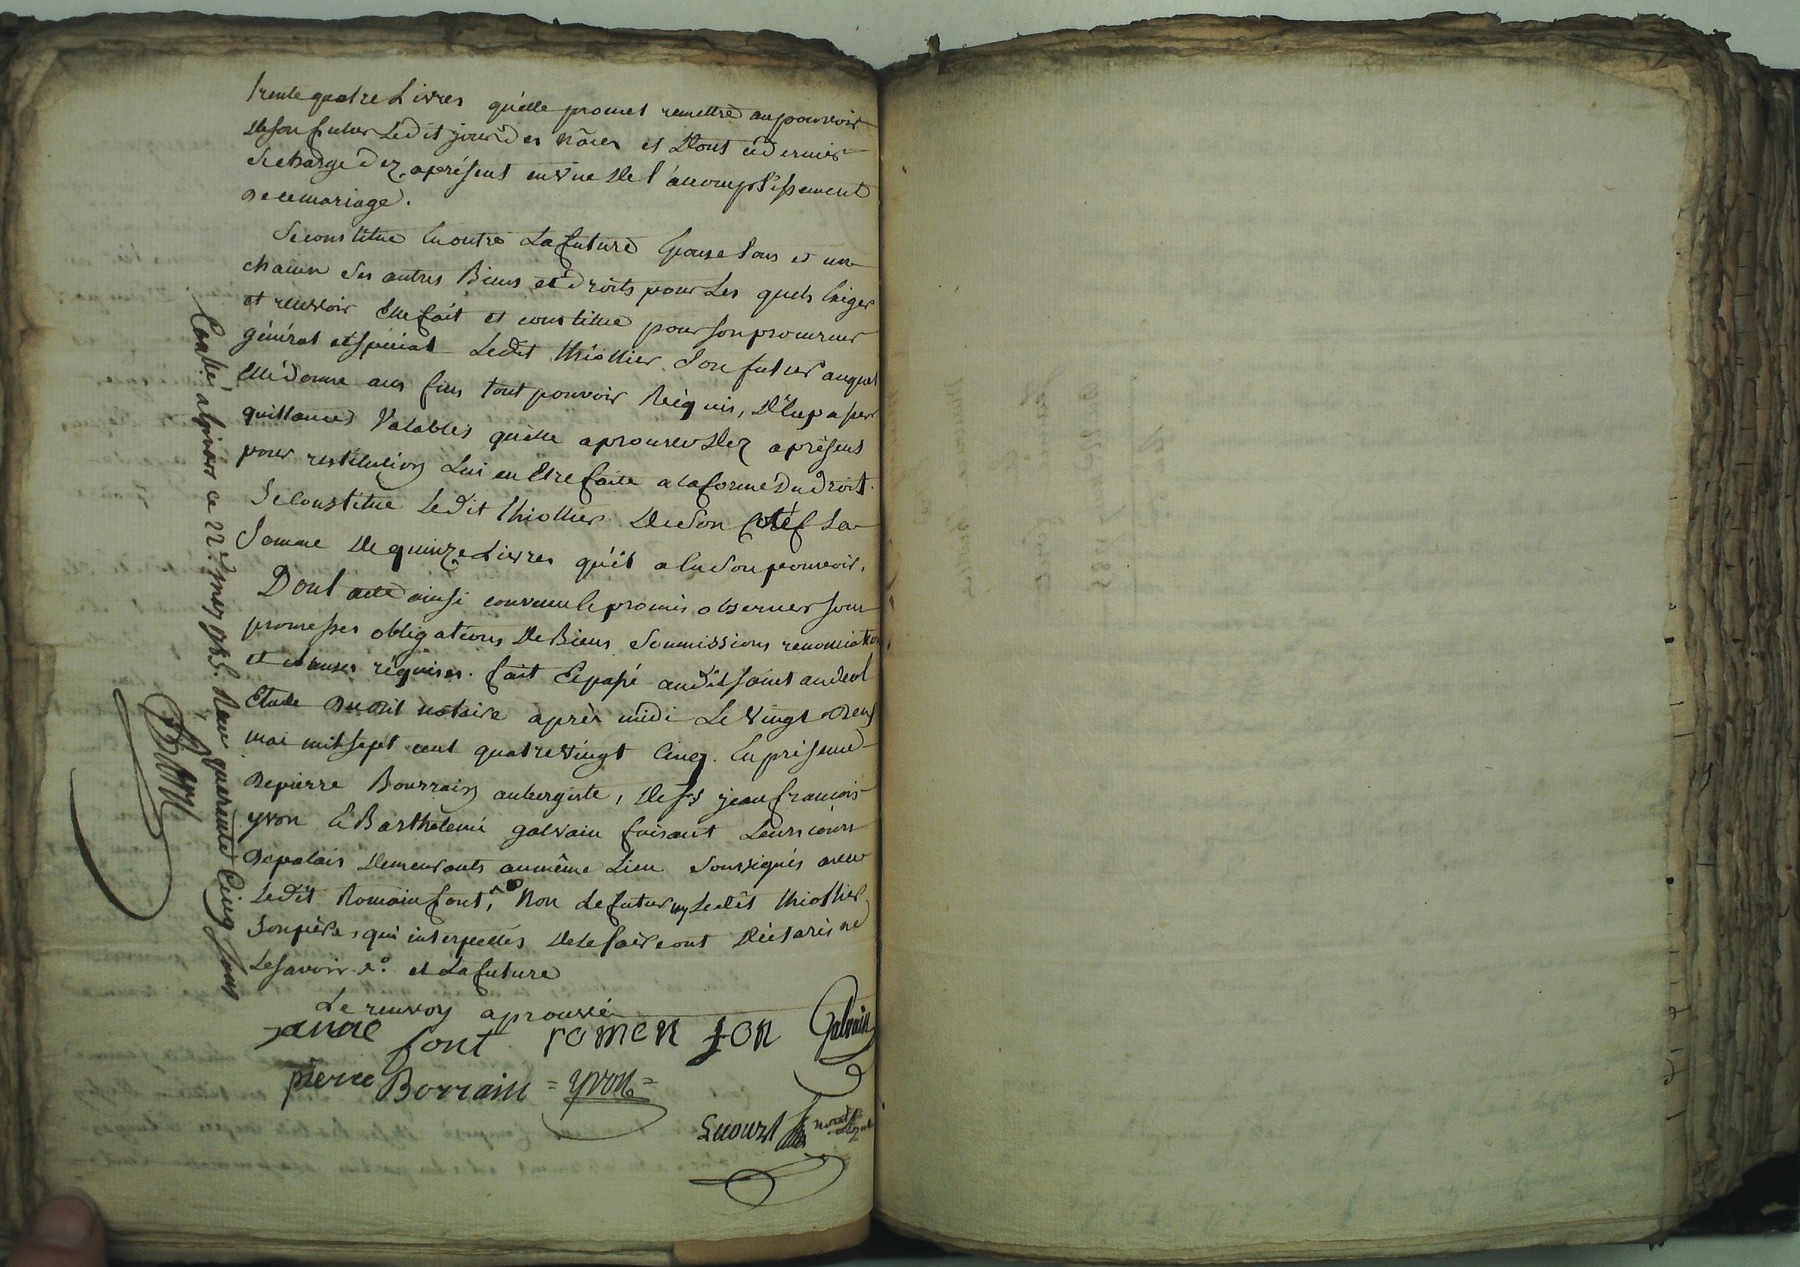 trente quatre Livres qu'elle promet remettre au pouvoir
de son futur Ledit jour des nôces et Dont cedernier
se charge dez aprésent en vue de l'accomplissement
De ce mariage.
Se constitue En outre La future Epouse tous et un
chacun ses autres Biens et droits pour Les quels Exiger
et recevoir Elle fait et constitue pour son procureur
général et spécial Ledit thiollier son futur auquel
Elle donne aux fins tout pouvoir Réquis, D'En passer
quittances Valables qu'elle aprouve Dez aprésent
pour restitution Lui en Etre faite a la forme du Droit.
Se Constitue Ledit thiollier De son Côté La
somme De quinze Livres qu'il a En son pouvoir.
Dont acte ainsi convenu Et promis observer sous
promesses obligations De Biens soumissions renonciation
et clauses réquises. fait Et passé audit saint andeol
Etude Dudit notaire après midi Le vingt Deux
mai mil sept cent quatrevingt Cinq. En présence
De pierre Bourrain aubergiste, De jean françois
yvon Et Barthelemi galvain faisant Leurs cours
De palais Demeurants aumême Lieu soussignés avec
Ledit Romain font, Non Le futur ny Ledit thiollier
son père, qui interpellés De le faire ont Déclaré ne
Le savoir. et La future
Le renvoy aprouvé
font romen fon Galvain
pierre Borrain = yvon =
Contlé a ce 22e may 1785. Reçu quarante Cinq sous